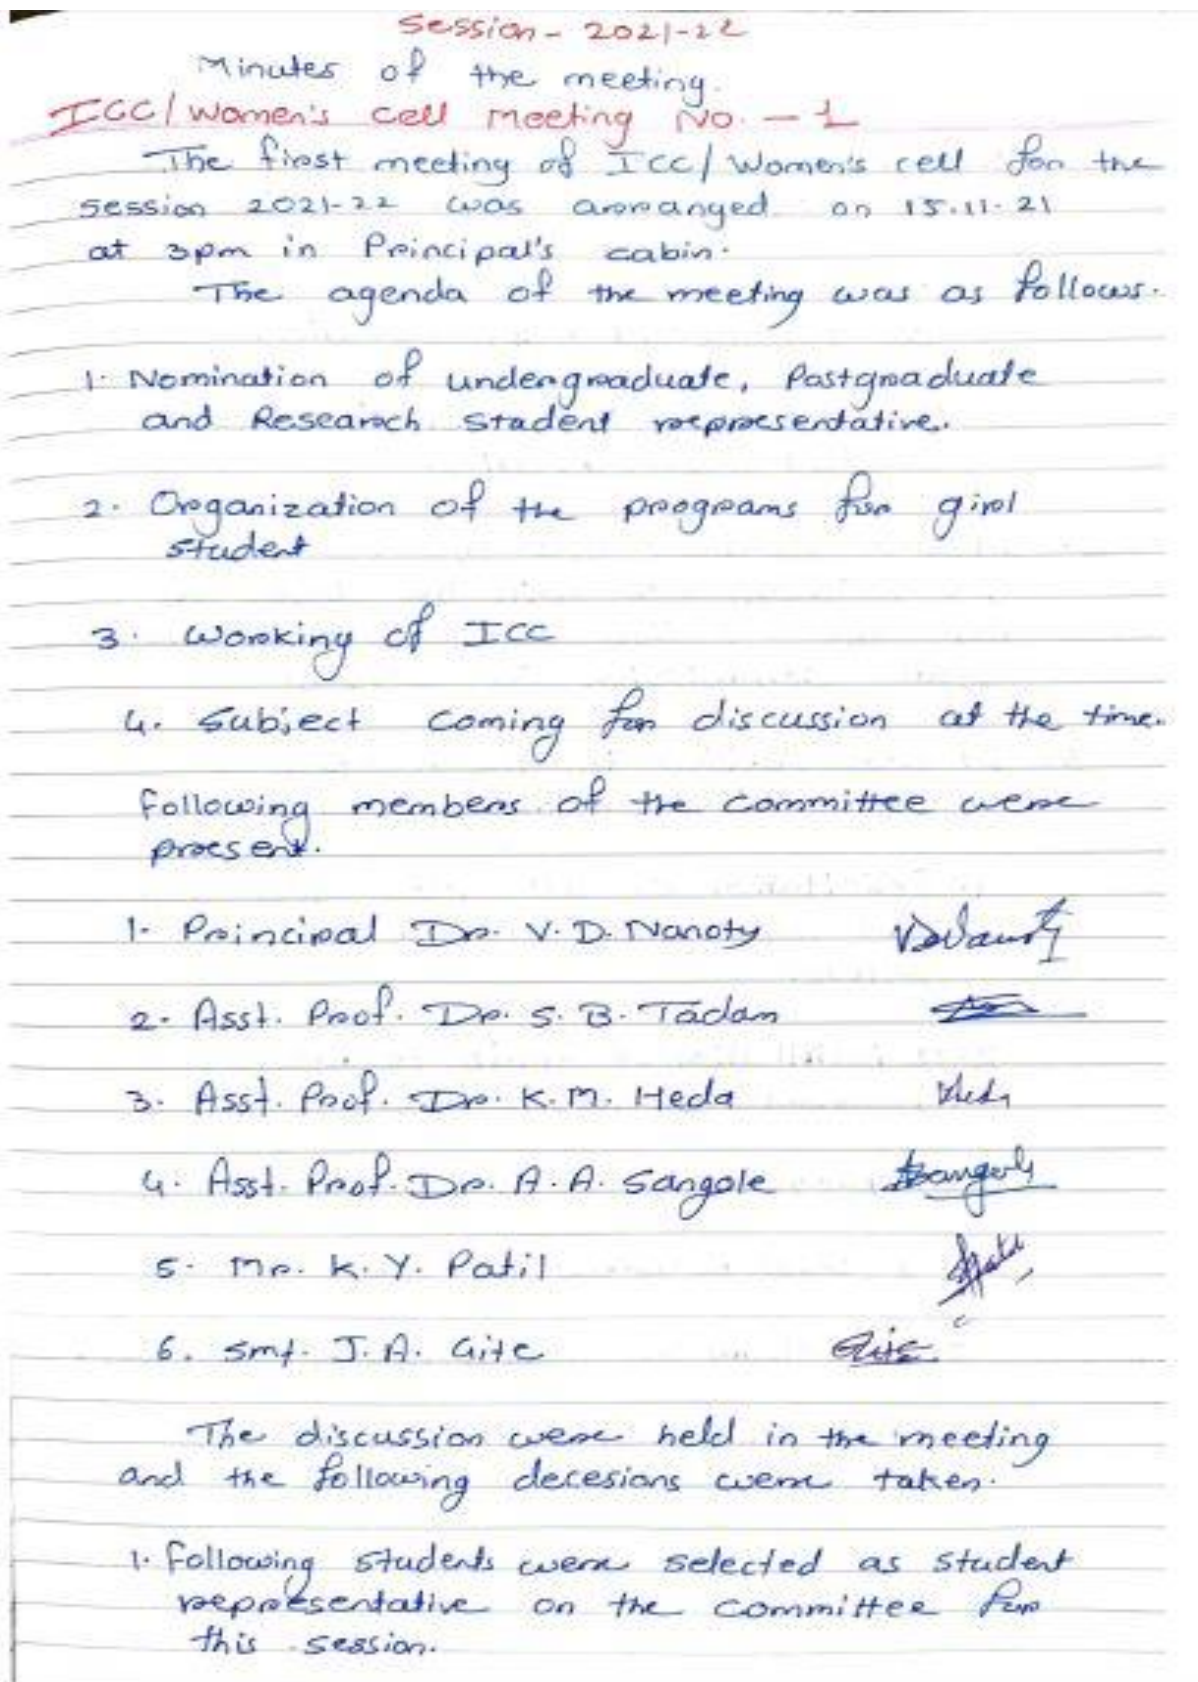 Session - 2021-22
Minutes of the meeting.
ICC/Women's cell meeting No. - 1
The first meeting of ICC/Women's cell for the
session 2021-22 was arranged on 15.11.21
at 3pm in Principal's cabin.
The agenda of the meeting was as follows.
1. Nomination of undergraduate, Postgraduate
and Research student representative.
2. Organization of the programs for girl
student
3. Working of ICC
4. Subject coming for discussion at the time.
Following members of the committee were
present.
1. Principal Dr. V. D. Nanoty
2. Asst. Prof. Dr. S. B. Tadam
3. Asst. Prof. Dr. K. M. Heda
4. Asst. Prof. Dr. A. A. Sangole
5. Mr. K. Y. Patil
6. Smt. J. A. Gite
The discussion were held in the meeting
and the following decesions were taken.
1. Following students were selected as student
representative on the committee for
this session.